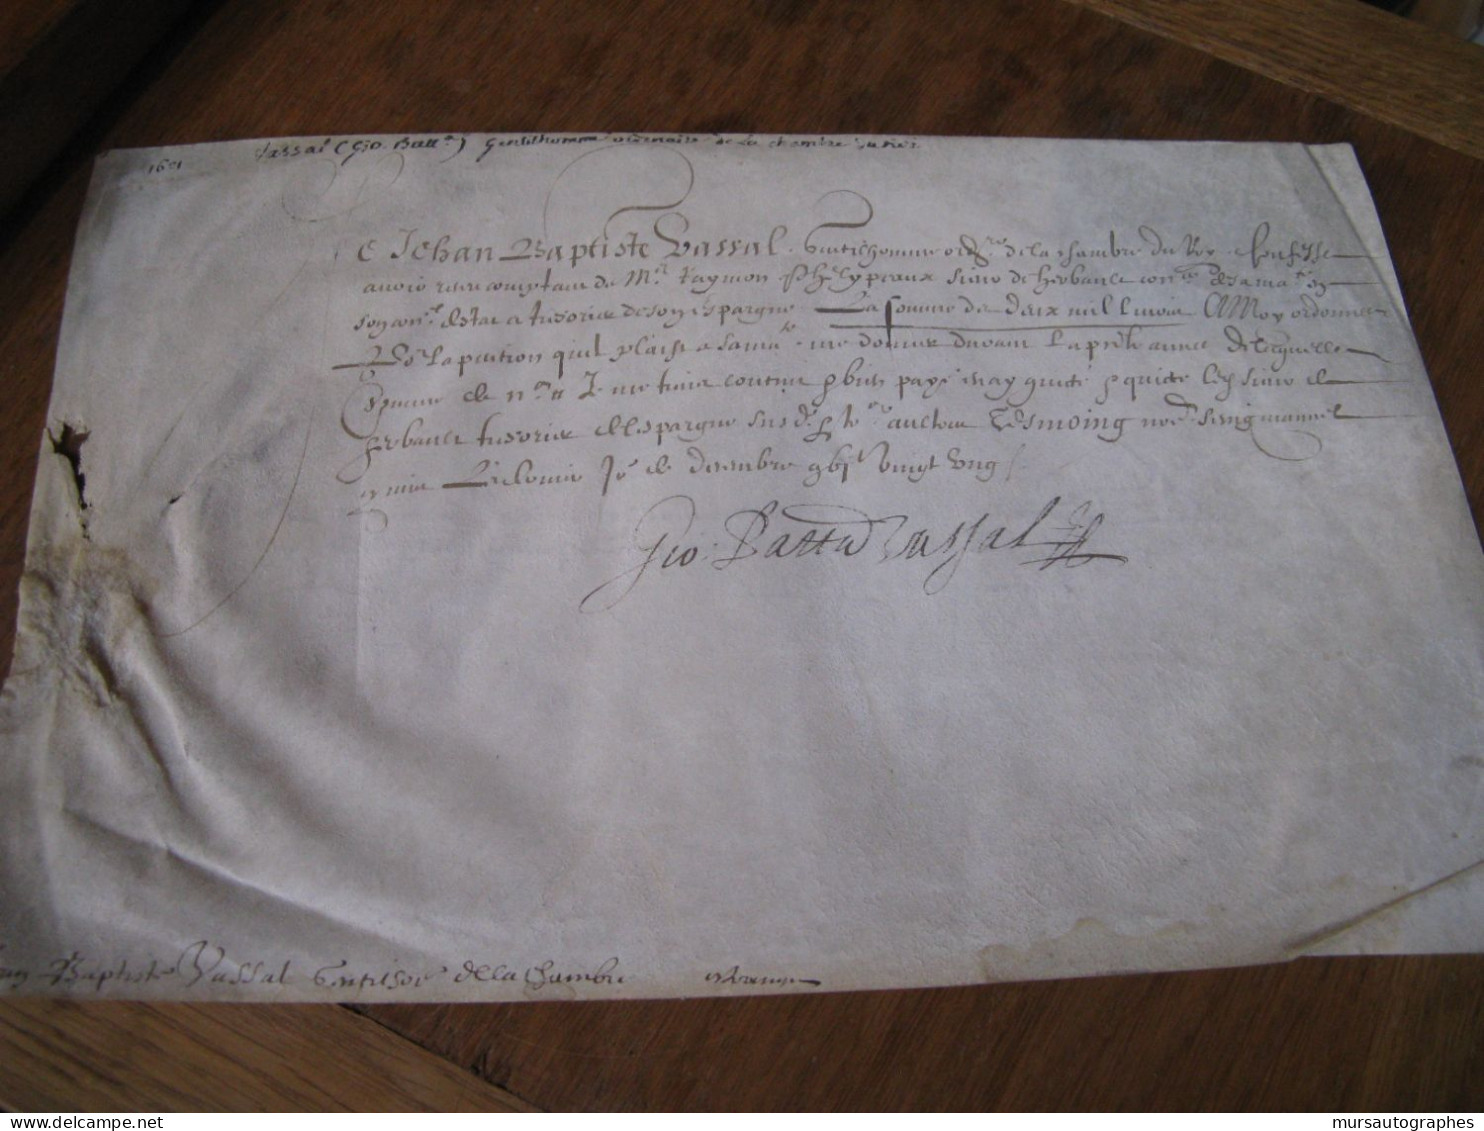 1621 Vassal (Gio. Batta) Gentilhomme ordinaire de la chambre du roi
Jehan Baptiste Vassal gentilhomme ordre de la chambre du Roy confesse
avoir receu comptant de Mr Raymon Phelypeaux sieur de herbault conr de sa mate en
son conl destat et tresorier de son espargne La somme de deux mil livres A Moy ordonnee
po la pention quil plaist a sa mate me donner durant la pnte annee De laquelle
somme de me tiens contant et bien payé et en ay quicté et quicte led sieur de
herbault tresorier de lespargne susd et to aultres Tesmoing mon seing manuel
cy mis Le de decembre vingt ung
Gio: Batta Vassal
Baptiste Vassal de la chambre
mursautographes